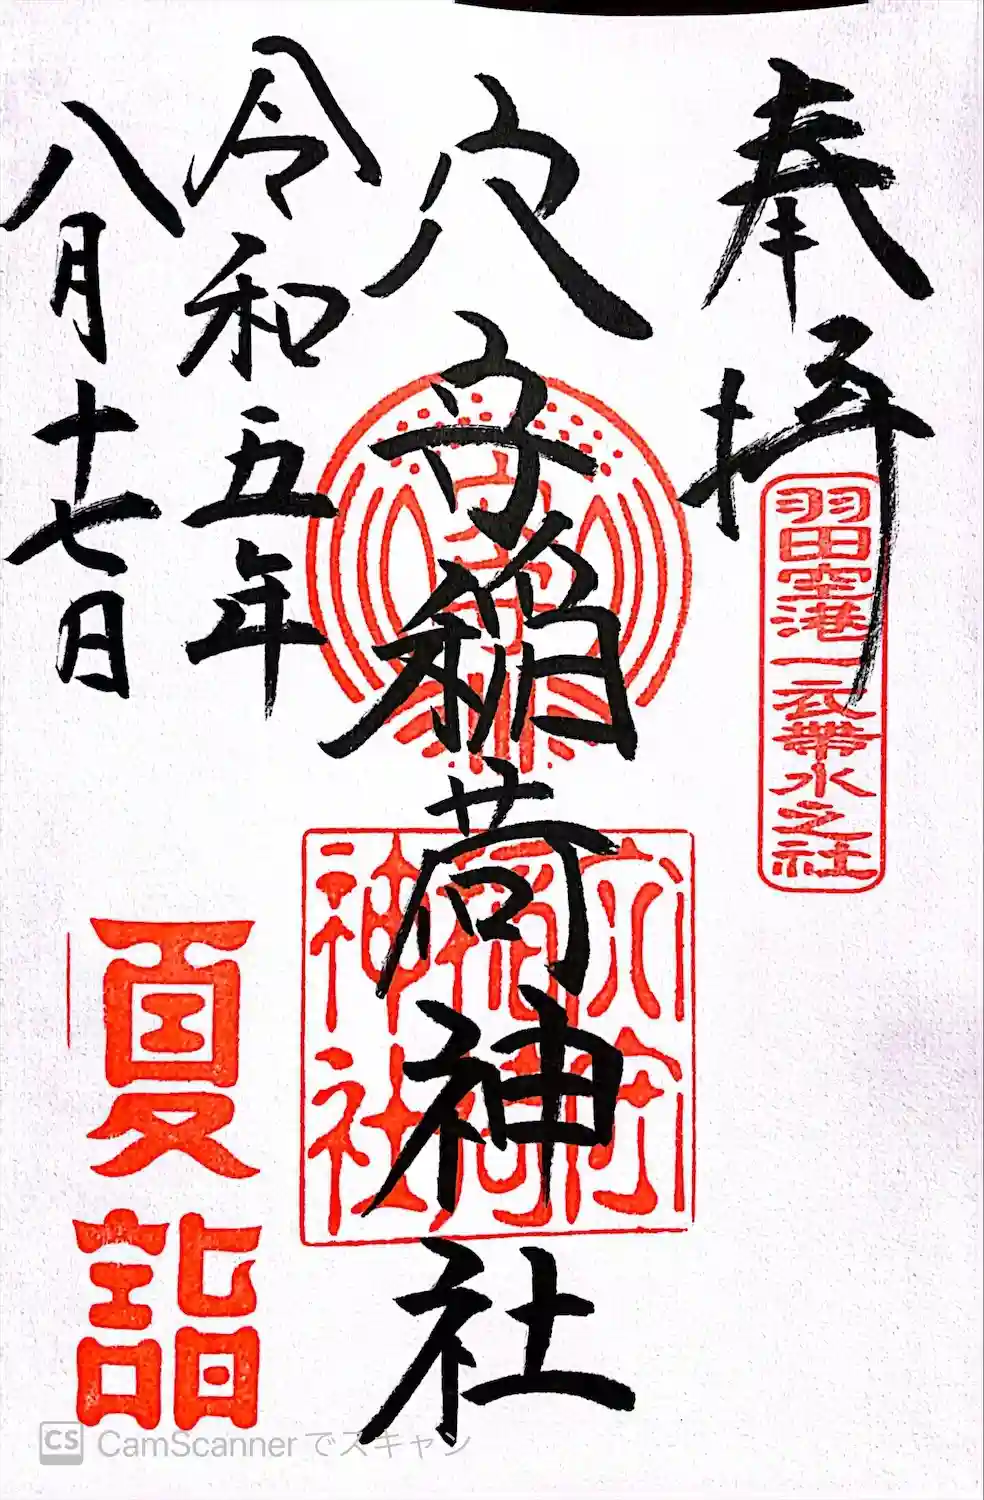 奉拝
羽田空港一衣帯水之社
穴守稲荷神社
穴守
稲荷
神社
令和五年
八月十七日
夏詣
CS CamScannerでスキャン